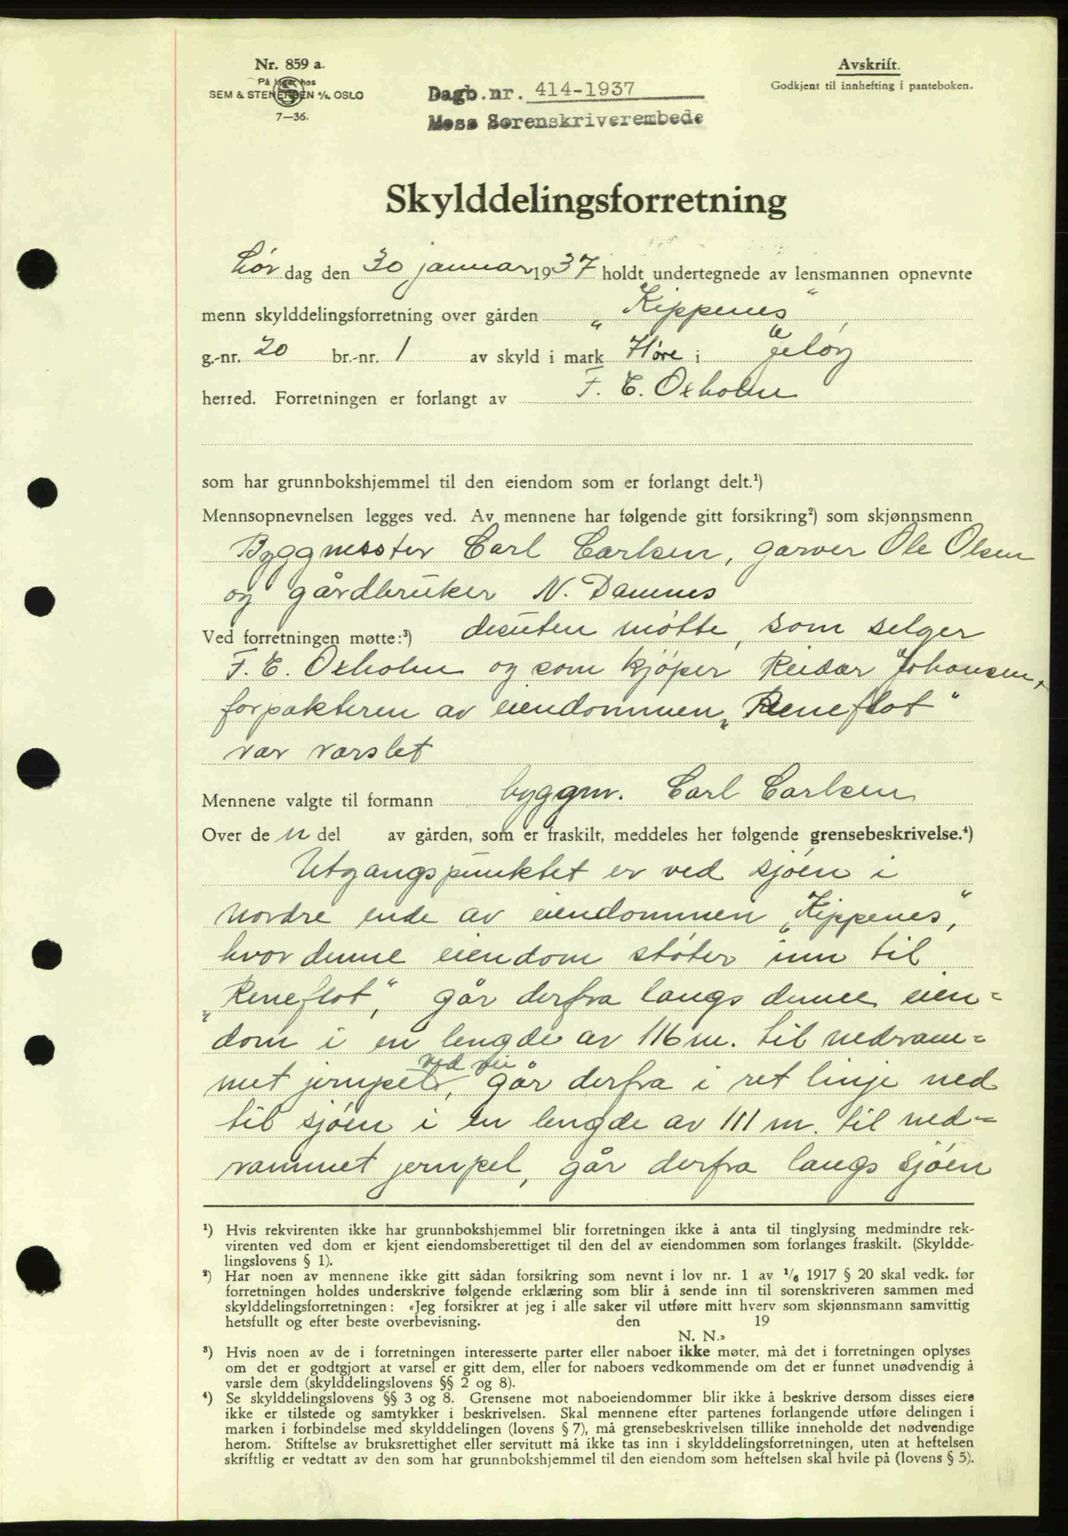 Nr. 859 a.
På lager hos
SEM & STENERSEN A/S, OSLO
7—36.
Dagb.nr. 414-1937
Moss Sorenskriverembede
Avskrift.
Godkjent til innhefting i panteboken.
Skylddelingsforretning
Lør dag den 30 januar 1937 holdt undertegnede av lensmannen opnevnte
menn skylddelingsforretning over gården „Kippenes“,
g.-nr. 20 br.-nr. 1 av skyld i mark Høre i Jeløy
herred. Forretningen er forlangt av F. E. Oxholm
som har grunnbokshjemmel til den eiendom som er forlangt delt.¹)
Mennsopnevnelsen legges ved. Av mennene har følgende gitt forsikring²) som skjønnsmenn
Byggmester Carl Carlsen, garver Ole Olsen
og gårdbruker N. Damnes
Ved forretningen møtte:³) desuten møtte, som selger
F. E. Oxholm og som kjøper Reidar Johansen,
forpakteren av eiendommen „Reneflot“
var varslet
Mennene valgte til formann byggm. Carl Carlsen
Over de n del av gården, som er fraskilt, meddeles her følgende grensebeskrivelse.⁴)
Utgangspunktet er ved sjøen i
nordre ende av eiendommen „Kippenes“,
hvor denne eiendom støter inn til
„Reneflot“, går derfra langs denne eien=
dom i en lengde av 116 m. til nedram=
met jernpel ved vei, går derfra i ret linje ned
til sjøen i en lengde av 111 m. til ned=
rammet jernpel, går derfra langs sjøen
¹) Hvis rekvirenten ikke har grunnbokshjemmel blir forretningen ikke å anta til tinglysing medmindre rek-
virenten ved dom er kjent eiendomsberettiget til den del av eiendommen som forlanges fraskilt. (Skyldde-
lingslovens § 1).
²) Har noen av mennene ikke gitt sådan forsikring som nevnt i lov nr. 1 av 1/6 1917 § 20 skal vedk. før
forretningen holdes underskrive følgende erklæring som blir å sende inn til sorenskriveren sammen med
skylddelingsforretningen: «Jeg forsikrer at jeg i alle saker vil utføre mitt hverv som skjønnsmann samvittig
hetsfullt og efter beste overbevisning. den 19
N. N.»
³) Hvis noen av de i forretningen interesserte parter eller naboer ikke møter, må det i forretningen oplyses
om det er godtgjort at varsel er gitt dem, eller for naboers vedkommende om det er funnet unødvendig å
varsle dem (skylddelingslovens §§ 2 og 8).
⁴) Se skylddelingslovens §§ 3 og 8. Grensene mot naboeiendommer blir ikke å beskrive dersom disses eiere
ikke er tilstede og samtykker i beskrivelsen. Skal mennene efter partenes forlangende utføre delingen i
marken i forbindelse med skylddelingen (lovens § 7), må grensebeskrivelsen tillike inneholde det nødvendige
herom. Stiftelse av bruksrettighet eller servitutt må ikke tas inn i skylddelingsforretningen, uten at heftelsen
skriftlig er vedtatt av den som har grunnbokshjemmel til den eiendom som heftelsen skal hvile på (lovens § 5).